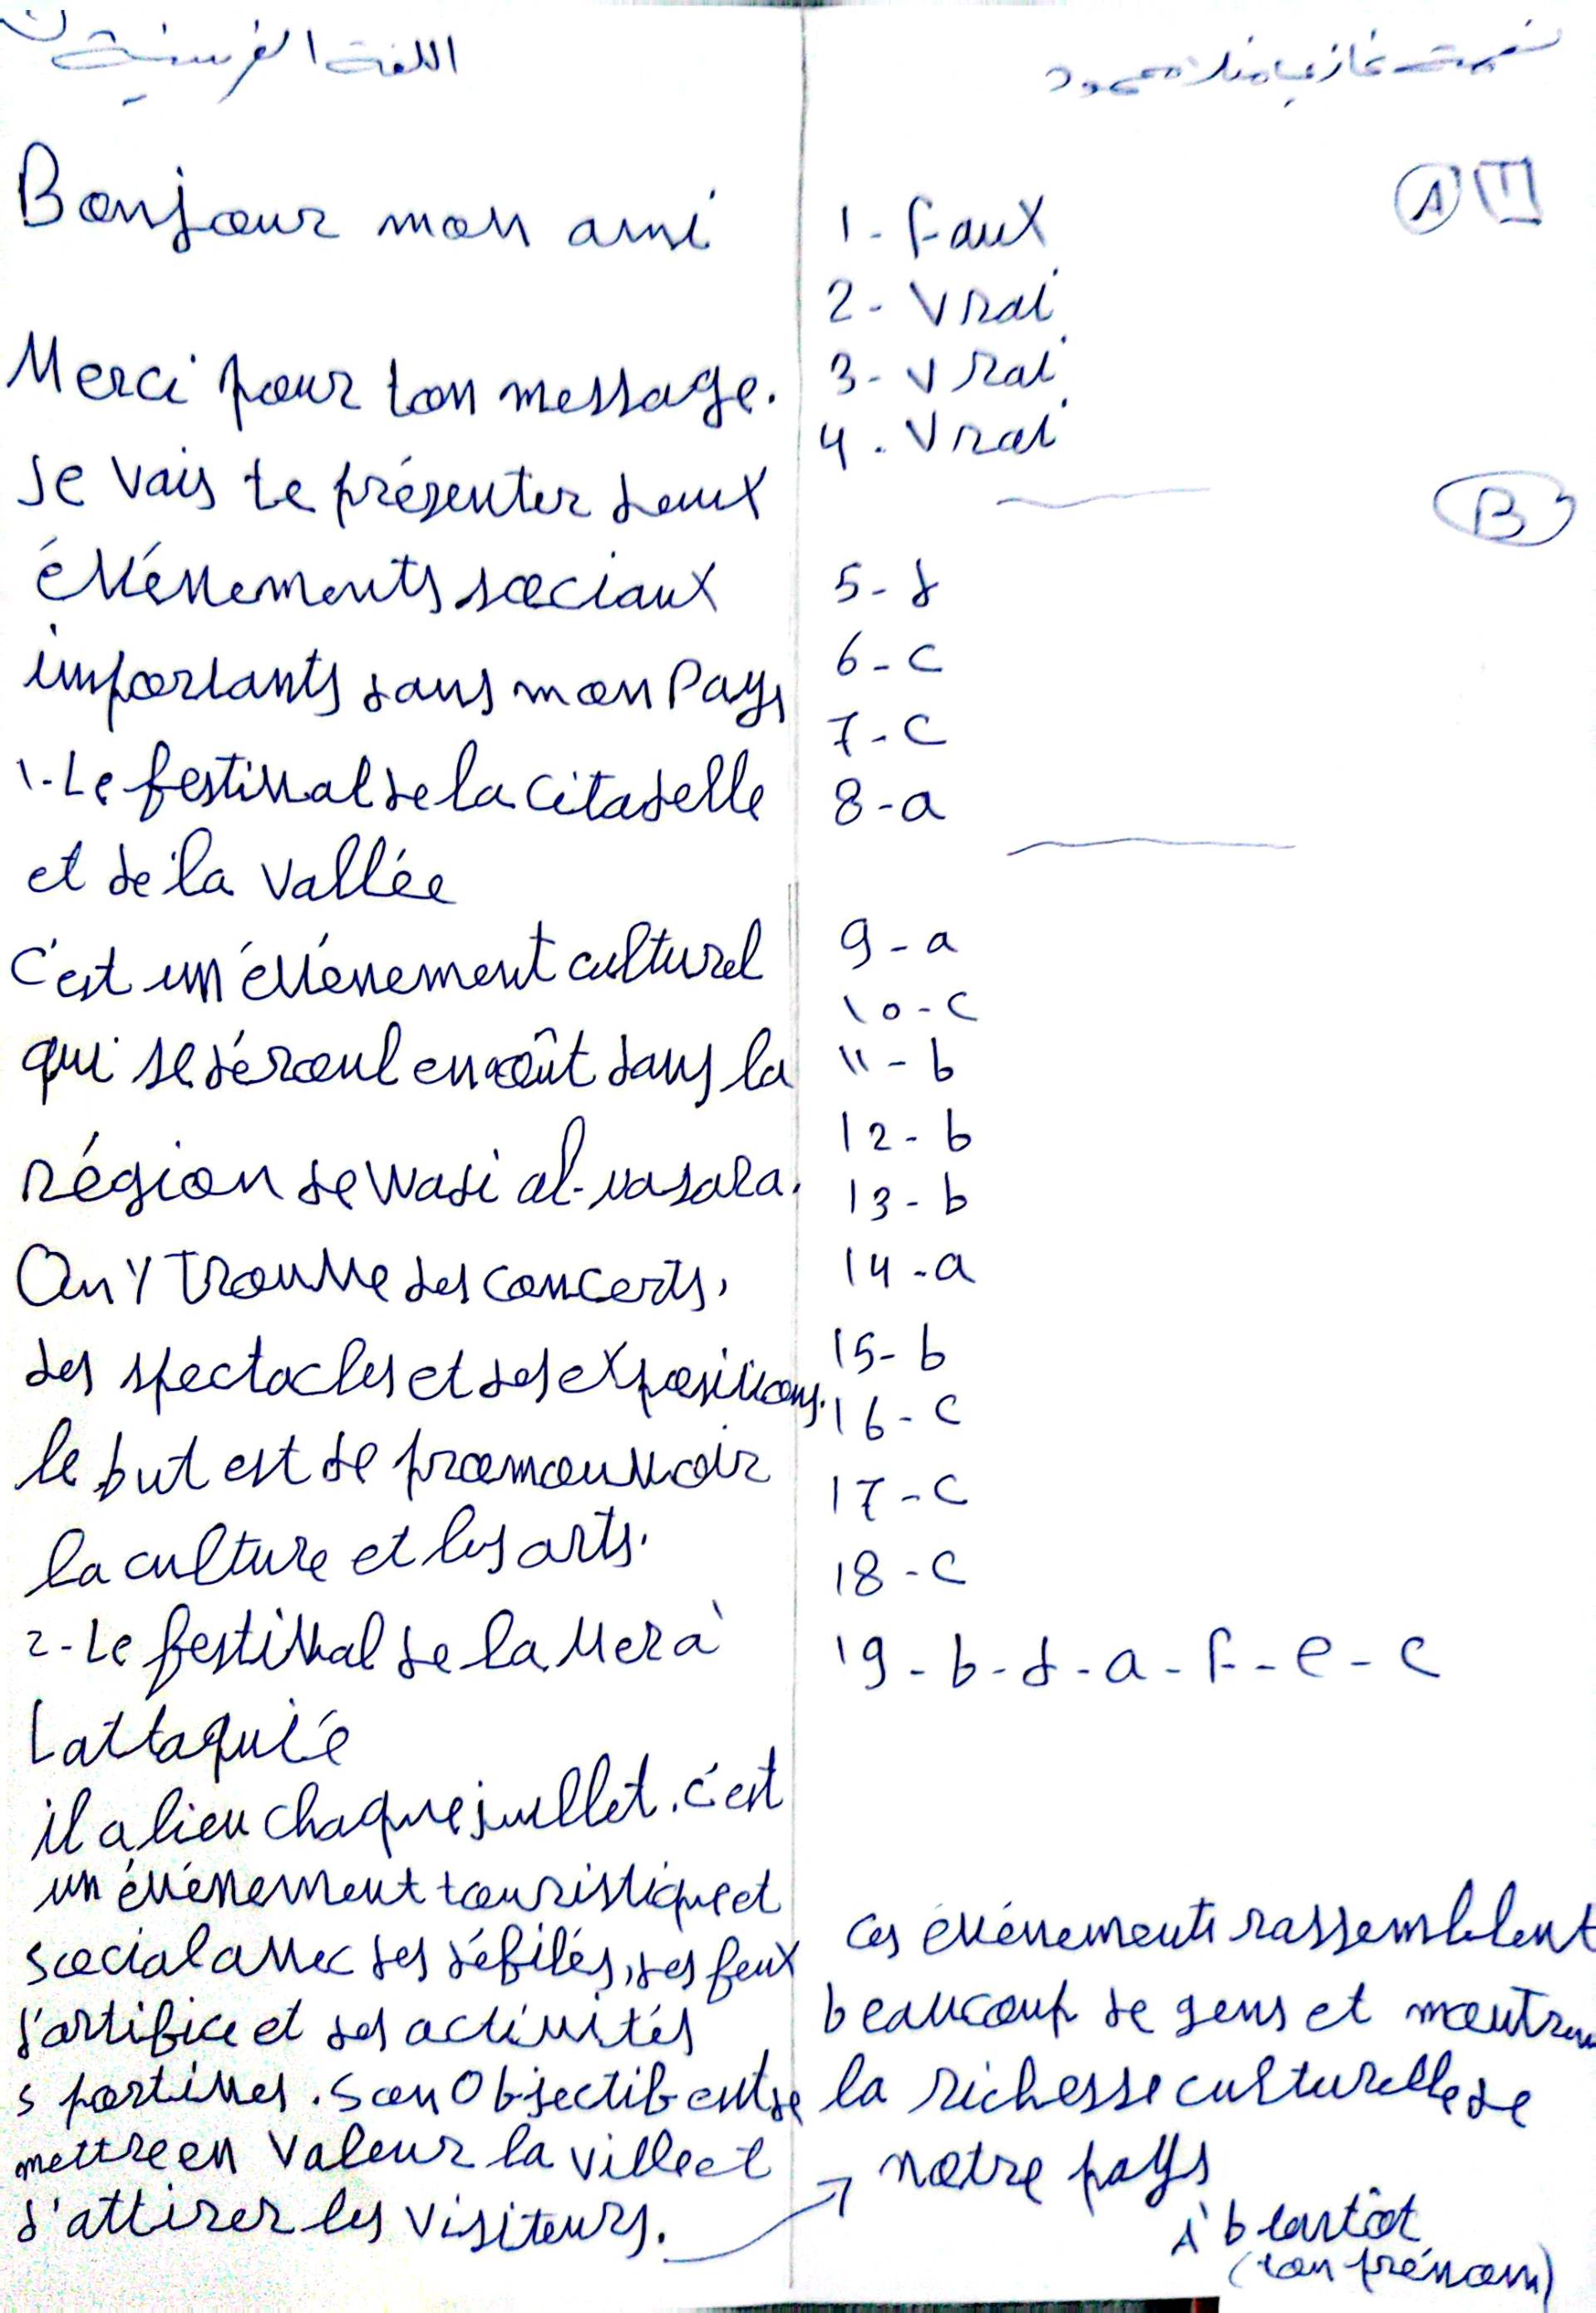 اللغة الفرنسية
Bonjour mon ami
Merci pour ton message.
Je vais te présenter deux
événements sociaux
importants dans mon Pays
1- Le festival de la citadelle
et de la vallée
c'est un événement culturel
qui se déroul en août dans la
région de wadi al-nasara.
On y trouve des concerts,
des spectacles et des expositions.
le but est de promouvoir
la culture et les arts.
2- Le festival de la Mer à
Lattaquié
il a lieu chaque juillet. c'est
un événement touristique et
social avec des défilés, des feux
d'artifice et des activités
sportives. Son Objectif est de
mettre en valeur la ville et
d'attirer les visiteurs.
محمود
A II
1- Faux
2- Vrai
3- Vrai
4- Vrai
B
5- d
6- c
7- c
8- a
9- a
10- c
11- b
12- b
13- b
14- a
15- b
16- c
17- c
18- c
19- b - d - a - F - e - c
Ces événements rassemblent
beaucoup de gens et montrent
la richesse culturelle de
notre pays
À bientôt
(ton prénom)